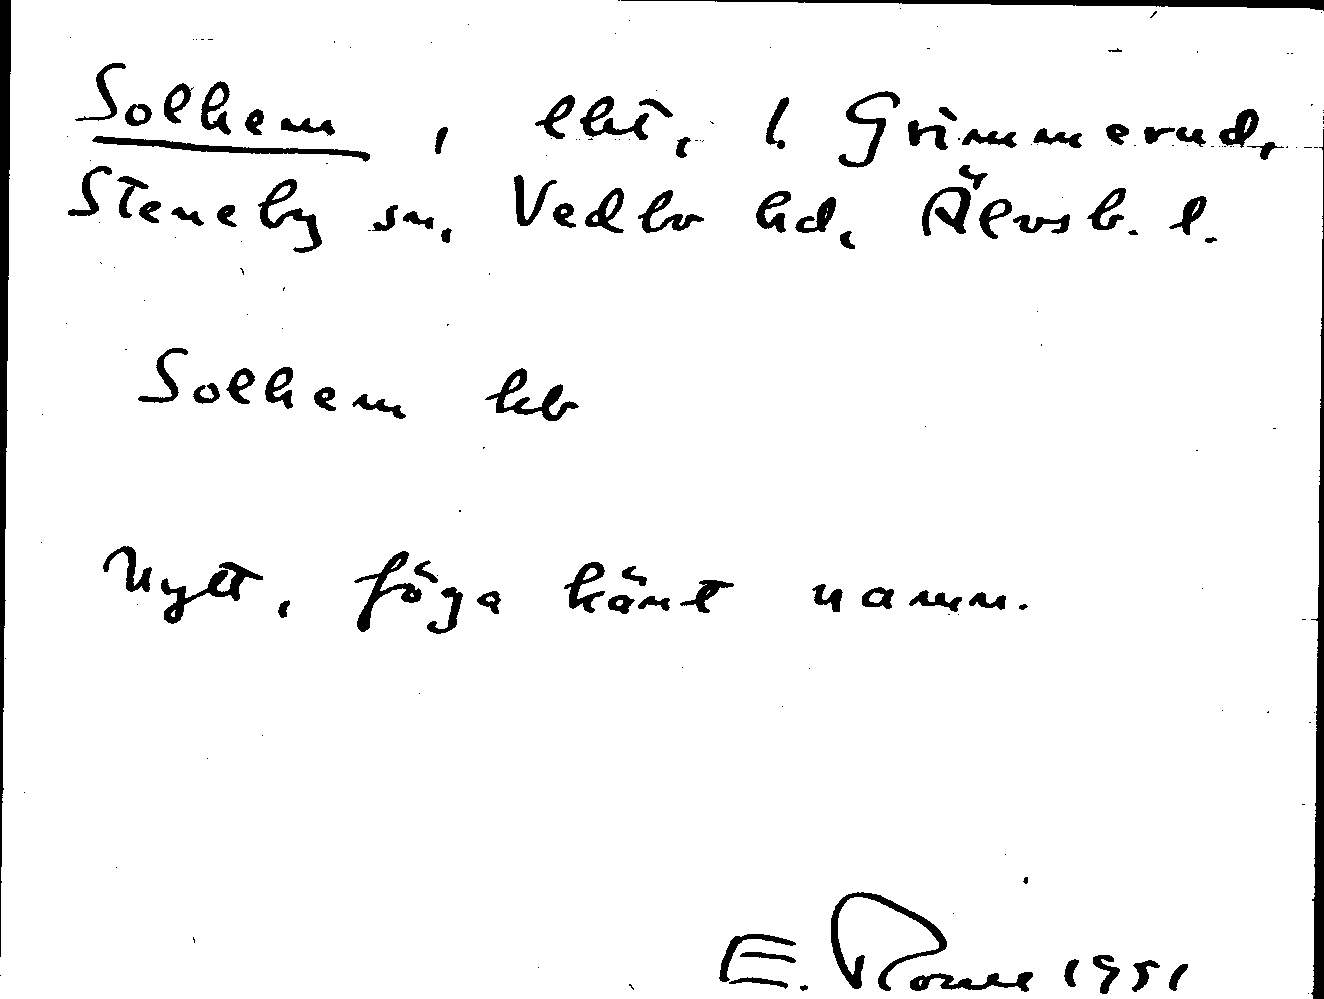 Solhem, lht, l. Grimmerud,
Steneby sn, Vedbo hd, Älvsb. l.
Solhem kb
Nytt, föga känt namn.
E. 1951